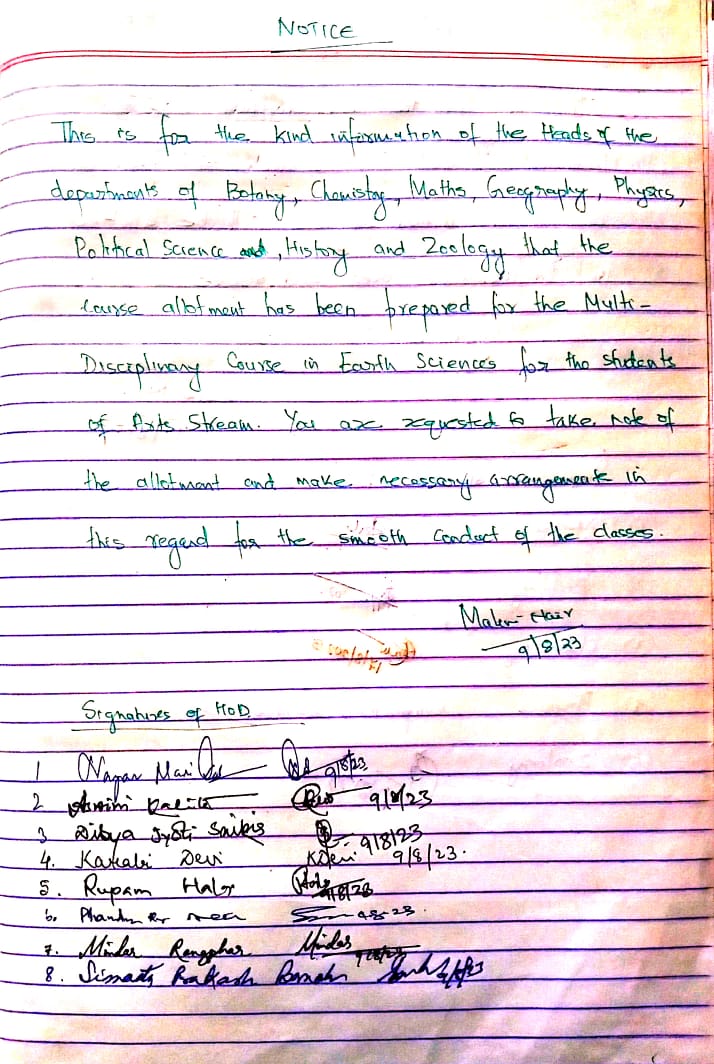 NOTICE
This is for the kind information of the Heads of the
departments of Botany, Chemistry, Maths, Geography, Physics,
Political Science and, History and Zoology that the
course allotment has been prepared for the Multi-
Disciplinary Course in Earth Sciences for the students
of Arts Stream. You are requested to take note of
the allotment and make necessary arrangements in
this regard for the smooth conduct of the classes.
9/8/23
Signatures of HOD
1
2 Kalita 9/8/23
3 Dibya Jyoti Saikia 9/8/23
4. Kakali Devi KDevi 9/8/23.
5. Rupam Haloi
6.
7. Mindar Rongphar Mindar
8. Prakash